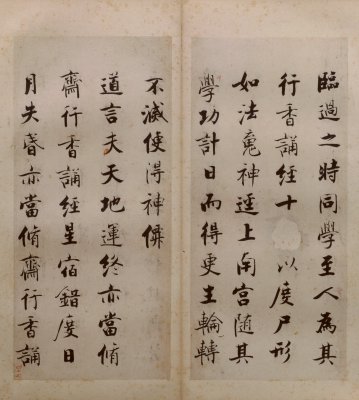 臨過之時同學至人為其
行香誦經十 以度尸形
如法魂神逕上南宮隨其
學功計日而得更生輪轉
不滅便得神僊
道言夫天地運終亦當脩
齋行香誦經星宿錯度日
月失昏亦當脩齋行香誦